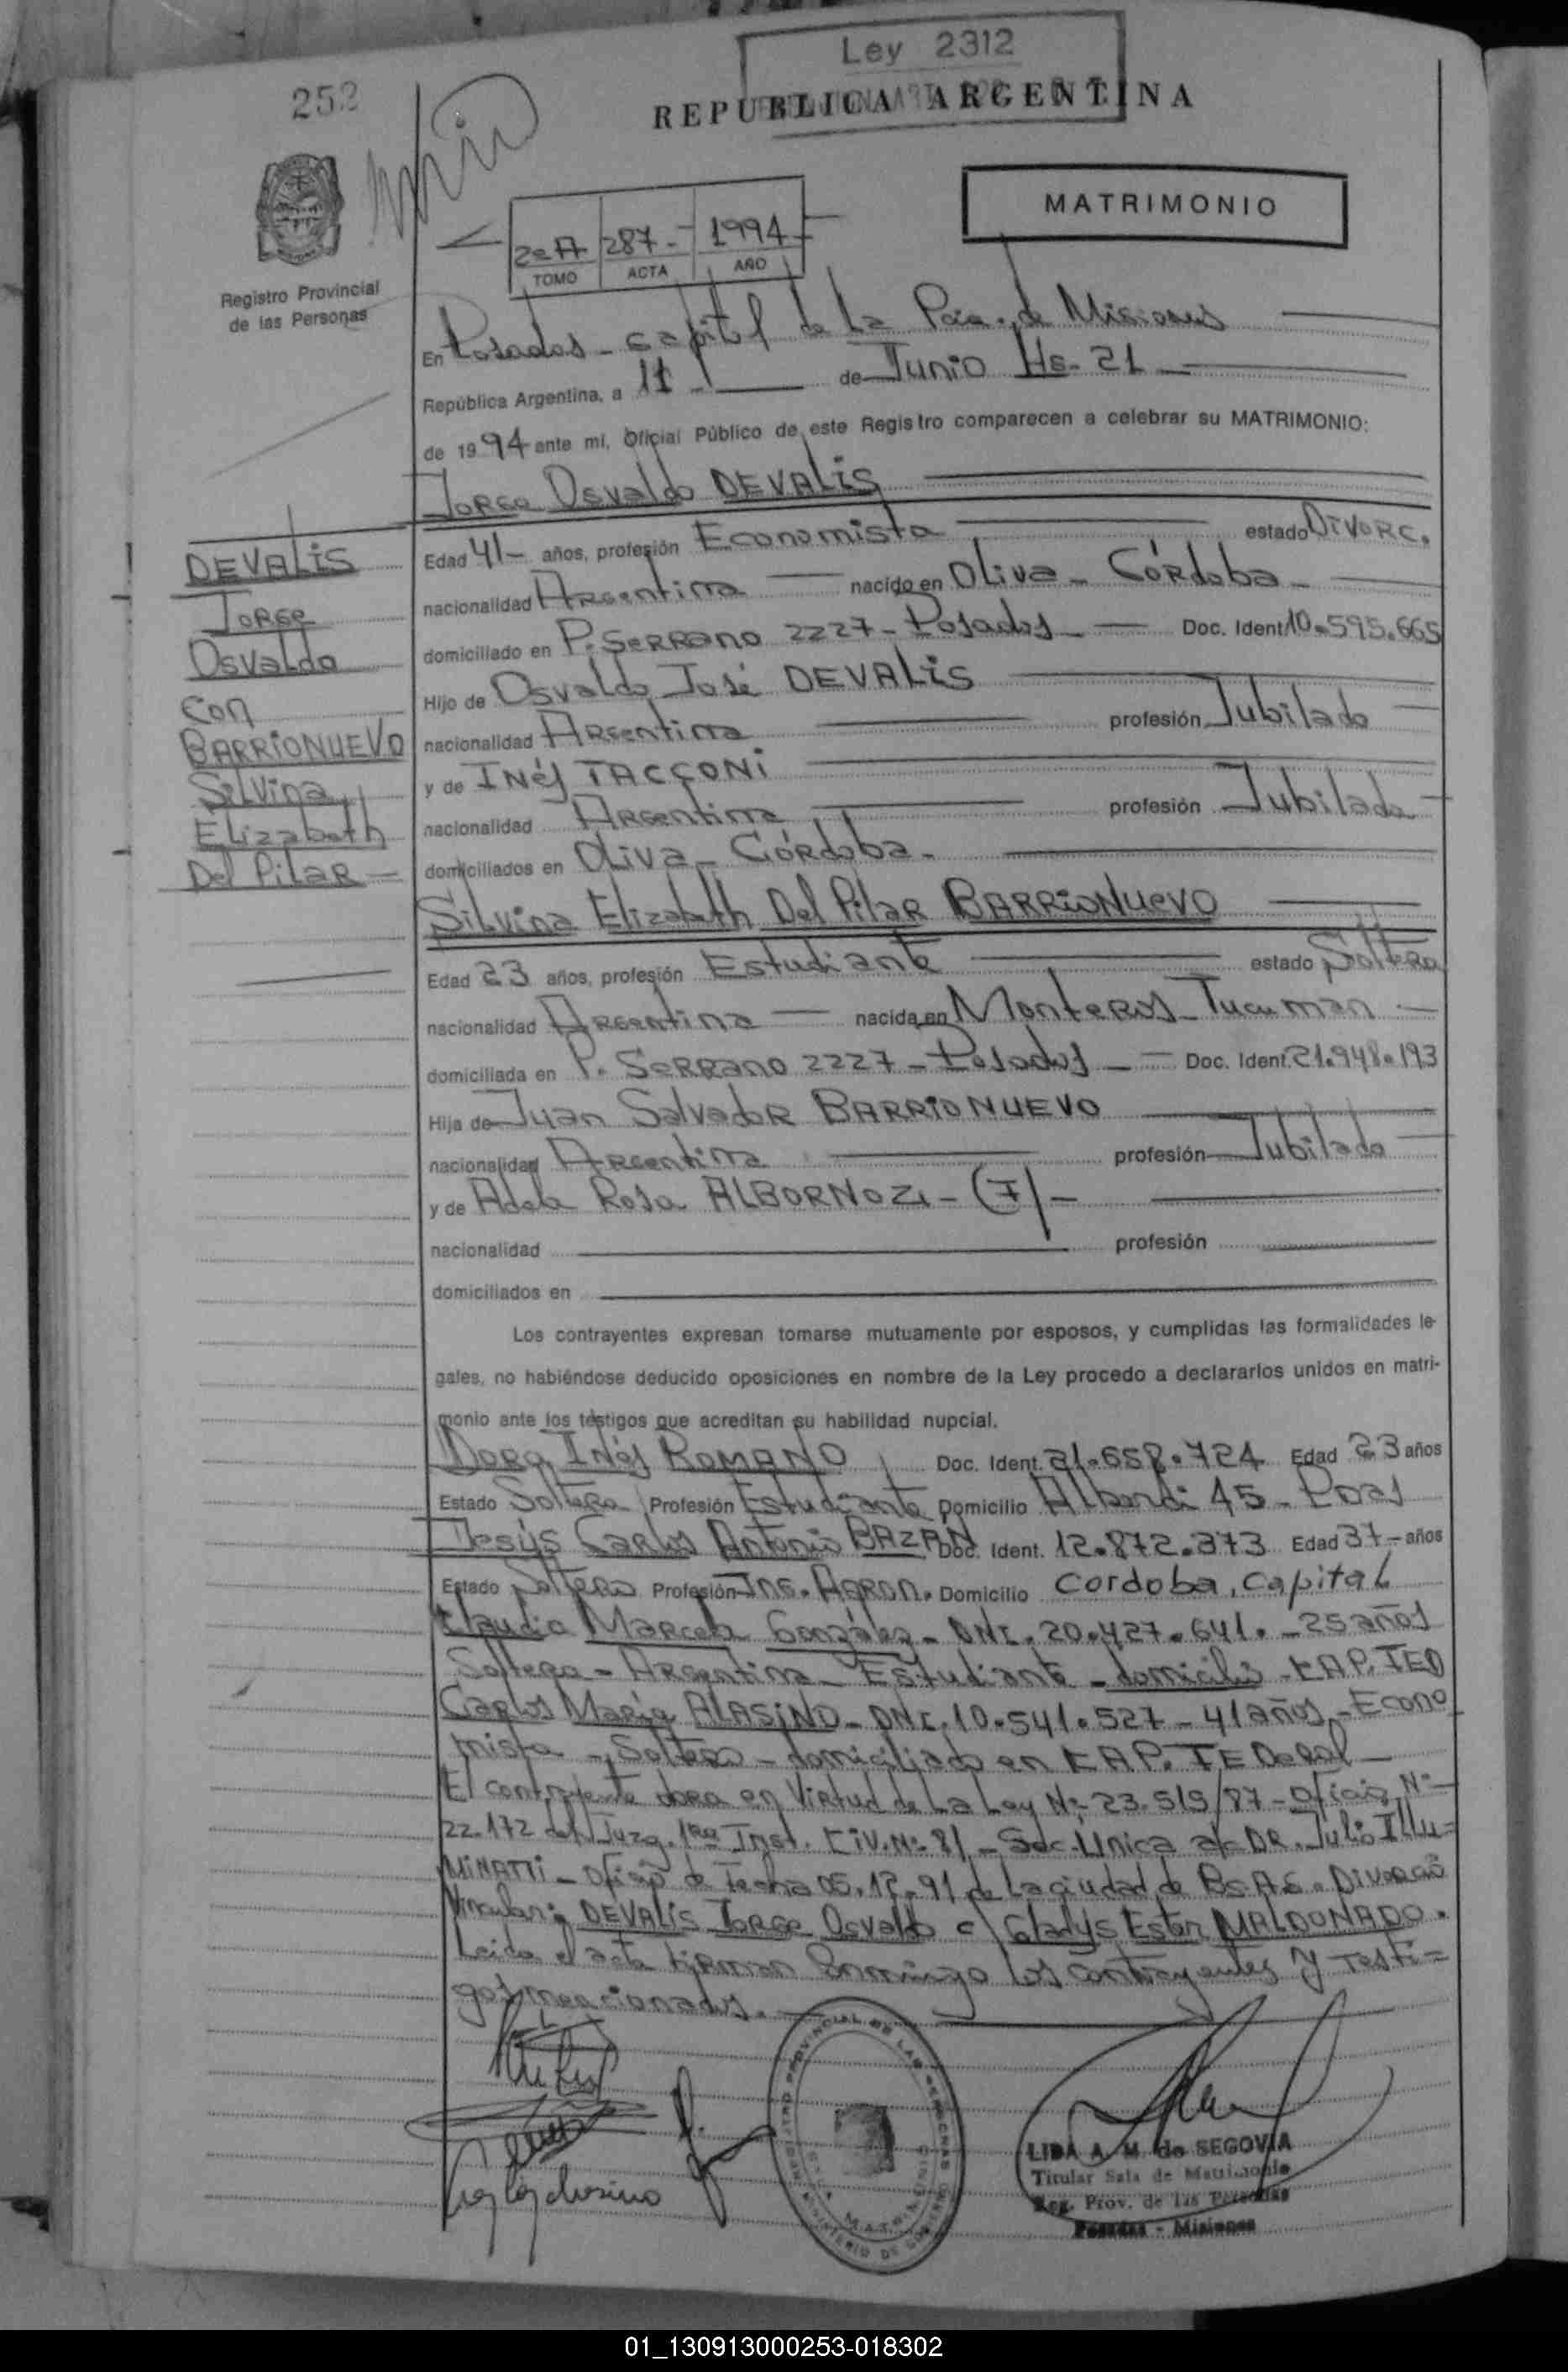 Ley 2312
252
REPUBLICA ARGENTINA
MATRIMONIO
2º A 287- 1994
TOMO ACTA AÑO
Registro Provincial
de las Personas
En Posadas - capital de La Pcia. de Misiones
República Argentina, a 11 - de Junio Hs. 21
de 1994 ante mi, Oficial Público de este Registro comparecen a celebrar su MATRIMONIO:
Jorge Osvaldo DEVALIS
DEVALIS
Jorge
Osvaldo
con
BARRIONUEVO
Silvina
Elizabeth
Del Pilar
Edad 41- años, profesión Economista estado Divorc.
nacionalidad Argentina nacido en Oliva - Córdoba -
domiciliado en P. Serrano 2227 - Posadas - Doc. Ident. 10.595.665
Hijo de Osvaldo José DEVALIS
nacionalidad Argentina profesión Jubilado
y de Inés TACCONI
nacionalidad Argentina profesión Jubilada
domiciliados en Oliva - Córdoba -
Silvina Elizabeth Del Pilar BARRIONUEVO
Edad 23 años, profesión Estudiante estado Soltera
nacionalidad Argentina nacida en Monteros - Tucuman
domiciliada en P. Serrano 2227 - Posadas - Doc. Ident. 21.948.193
Hija de Juan Salvador BARRIONUEVO
nacionalidad Argentina profesión Jubilado
y de Adela Rosa ALBORNOZ -
nacionalidad profesión
domiciliados en
Los contrayentes expresan tomarse mutuamente por esposos, y cumplidas las formalidades le-
gales, no habiéndose deducido oposiciones en nombre de la Ley procedo a declararlos unidos en matri-
monio ante los testigos que acreditan su habilidad nupcial.
Dora Inés ROMANO Doc. Ident. 21.658.724 Edad 23 años
Estado Soltera Profesión Estudiante Domicilio Alberdi 45 - Pdas
Jesús Carlos Antonio BAZAN Doc. Ident. 12.872.373 Edad 37- años
Estado Soltero Profesión Ing. Agron. Domicilio Cordoba, Capital
Claudia Marcela González - DNI. 20.427.641. - 25 años
Soltera - Argentina - Estudiante - domicilio
Carlos María ALASINO - DNI. 10.541.527 - 41 años - Econo
mista - Soltero - domiciliado en
El contrayente en Virtud de La Ley Nº 23.515/87 - Oficio Nº
22.172 del Juzg. 1ra Inst. Civ. Nº 81 - Sec. Unica DR. Julio
Oficio de Fecha 05.12.91 de La ciudad de Bs. As. Divorcio
Vincular: DEVALIS Jorge Osvaldo c/ Gladys Ester MALDONADO.
Leida el acta firman Conmigo los contrayentes y testi=
gos mencionados.
REGISTRO PROVINCIAL DE LAS PERSONAS
MINISTERIO DE GOBIERNO
LIDA A. M. de SEGOVIA
Titular Sala de Matrimonio
Reg. Prov. de las Personas
Posadas - Misiones
01_130913000253-018302